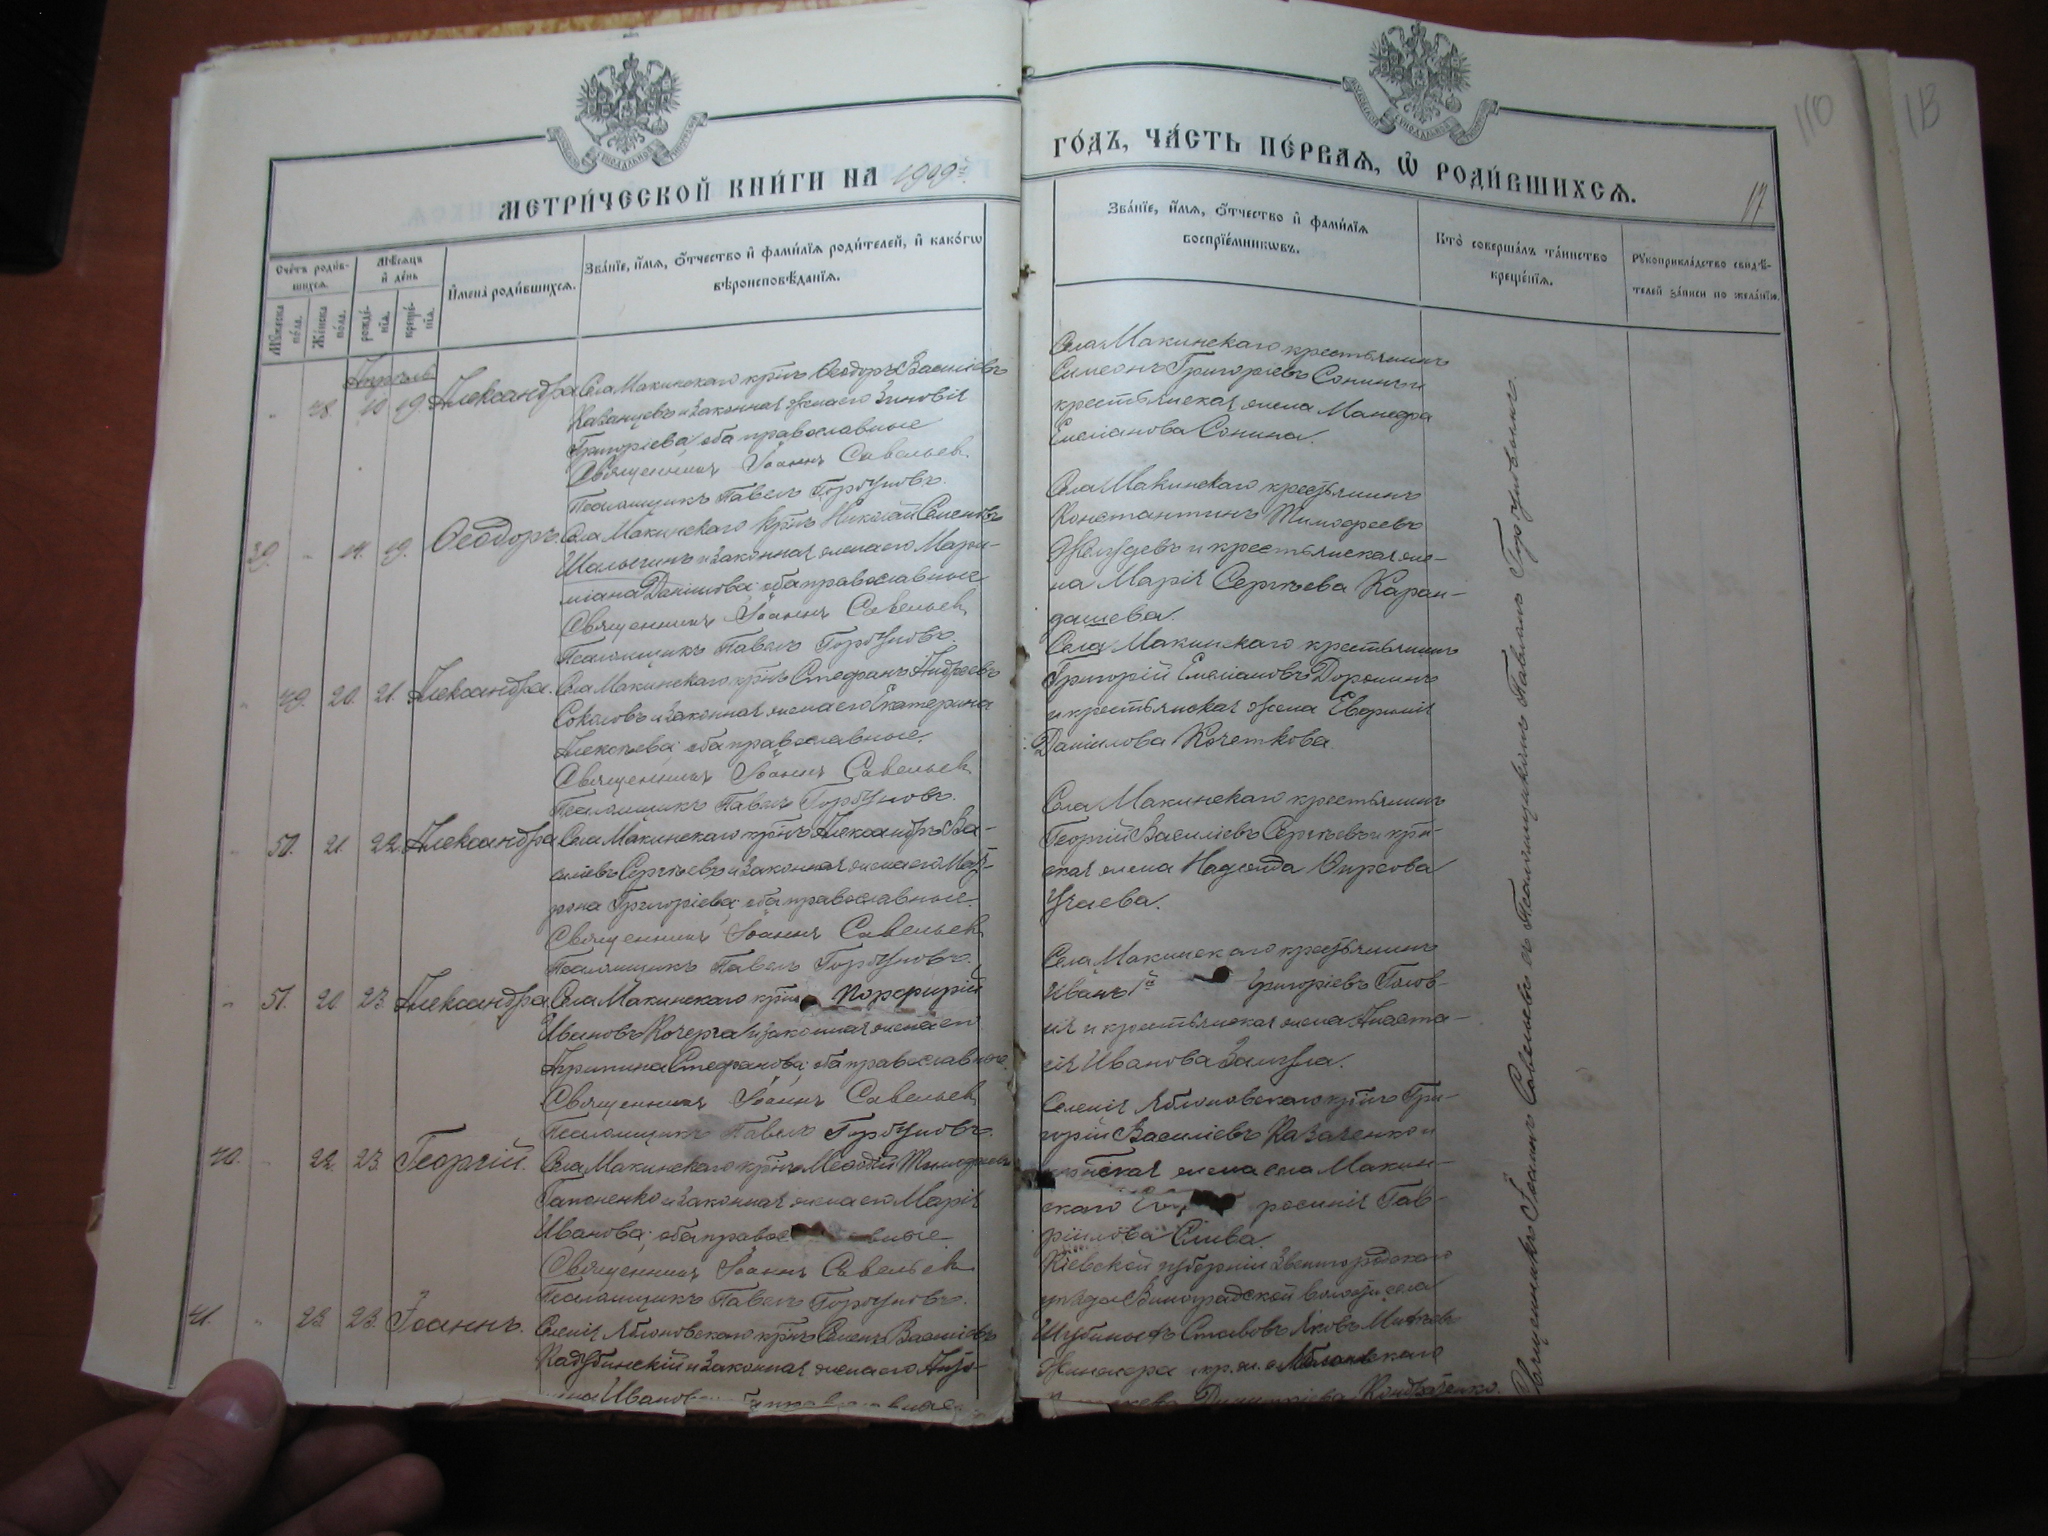 МЕТРИ́ЧЕСКОЙ КНИ́ГИ НА 1909й
ГО́ДЪ, ЧА́СТЬ ПЕ́РВАѦ, Ѿ РОДИ́ВШИХСѦ.
110
113
17
Сче́тъ роди́в-
шихсѧ.
Мꙋжеска по́ла.
Же́нска по́ла.
Мѣ́сѧцъ
и҆ де́нь
рожде́-
нїѧ.
креще́-
нїѧ.
И҆мена̀ роди́вшихсѧ.
Зва́нїе, и҆́мѧ, ѻ҆́тчество и҆ фами́лїѧ роди́телей, и҆ како́гѡ
вѣроисповѣ́данїѧ.
Зва́нїе, и҆́мѧ, ѻ҆́тчество и҆ фами́лїѧ
воспрїе́мникѡвъ.
Кто̀ соверша́лъ та́инство
креще́нїѧ.
Рꙋкоприкла́дство свидѣ́-
телей за́писи по жела́нїю.
Апрѣль
48. 10 19. Александра
Села Макинскаго крнъ Ѳеодоръ Василіевъ
Казанцевъ и законная жена его Зиновія
Григоріева, оба православные
Священникъ Іоаннъ Савельев
Псаломщикъ Павелъ Горбуновъ.
Села Макинскаго крестьянинъ
Симеонъ Григоріевъ Сонинъ и
крестьянская жена
Емеліанова Сонина.
39. 14. 19. Ѳеодоръ.
Села Макинскаго крнъ Николай Семеновъ
Шалыгинъ и законная жена его Мари-
міана Даніилова; оба православные
Священникъ Іоаннъ Савельев
Псаломщикъ Павелъ Горбуновъ.
Села Макинскаго крестьянинъ
Константинъ Тимофеевъ
и крестьянская же-
на Марія Сергѣева Каран-
дашева.
49. 20. 21. Александра.
Села Макинскаго крнъ Стефанъ Андреевъ
Соколовъ и законная жена его Екатерина
Алексѣева; оба православные.
Священникъ Іоаннъ Савельев
Псаломщикъ Павелъ Горбуновъ.
Села Макинскаго крестьянинъ
Григорій Емеліановъ Доронинъ
и крестьянская жена Евфимія
Даніилова Кочеткова.
50. 21. 22. Александра
Села Макинскаго крнъ Александръ Ва-
силіевъ Сергѣевъ и законная жена его Мат-
рона Григоріева; оба православные.
Священникъ Іоаннъ Савельев
Псаломщикъ Павелъ Горбуновъ.
Села Макинскаго крестьянинъ
Георгій Василіевъ Сергѣевъ и кртн-
ская жена Надежда Фирсова
Учаева.
51. 20 23 Александра
Села Макинскаго крнъ Порфирій
Ивановъ Кочерга и законная жена его
Агрипина Стефанова; оба православные.
Священникъ Іоаннъ Савельев
Псаломщикъ Павелъ Горбуновъ.
Села Макинскаго крестьянинъ
Иванъ 1й Григоріевъ Голов-
ня и крестьянская жена Анаста-
сія Иванова
40. 22. 23. Георгій.
Села Макинскаго крнъ Меѳодій Тимофеевъ
Гапоненко и законная жена его Марія
Иванова; оба правос вные.
Священникъ Іоаннъ Савельев
Псаломщикъ Павелъ Горбуновъ.
Селенія Яблоновскаго крнъ Гри-
горій Василіевъ Казаченко и
жена села Макин-
скаго росинія Гав-
ріилова Слива.
41. 23. 23. Іоаннъ.
Селенія Яблоновскаго крнъ Семенъ Василіевъ
Кадубинскій и законная жена его
Иванова
Кіевской губерніи Звенигородскаго
уѣзда Виноградской волости села
Яковъ
Яблоновскаго
Димитріева Кондратенко.
Священникъ Іоаннъ Савельевъ съ Псаломщикомъ Павломъ Горбуновымъ.